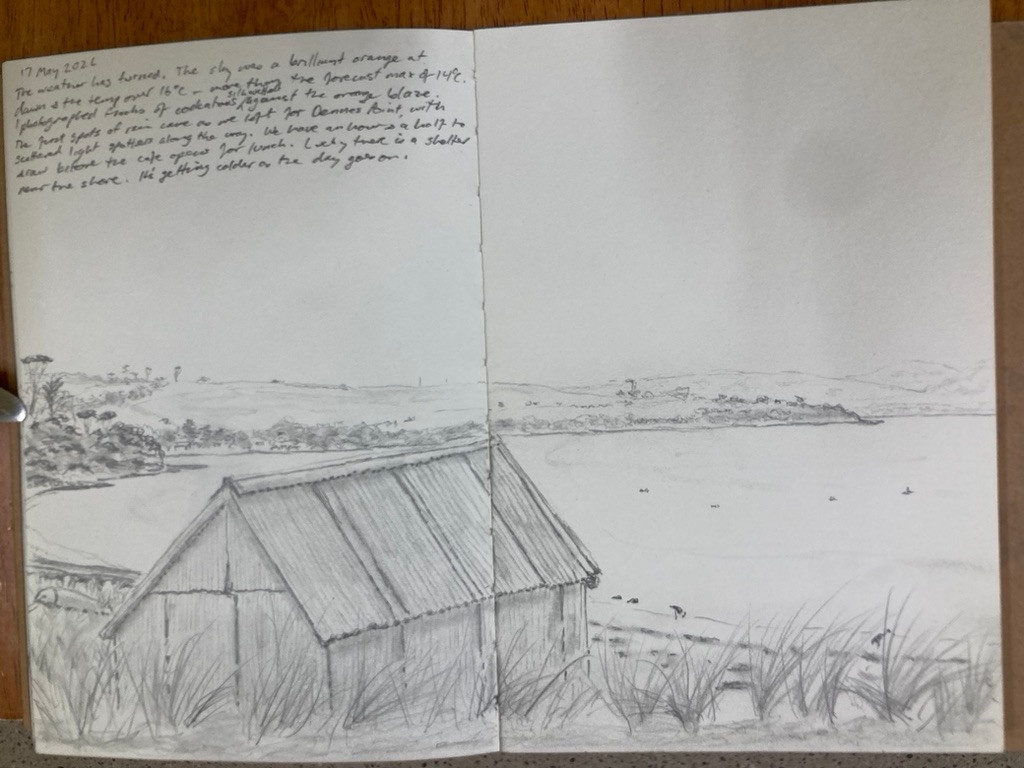 17 May 2026
The weather has turned. The sky was a brilliant orange at
dawn & the temp over 16°C – more than the forecast max of 14°C.
I photographed flocks of cockatoos silhouetted against the orange blaze.
The first spots of rain came as we left for Dennes Point, with
scattered light spatters along the way. We have an hour & a half to
draw before the cafe opens for lunch. Lucky there is a shelter
near the shore. It's getting colder as the day goes on.